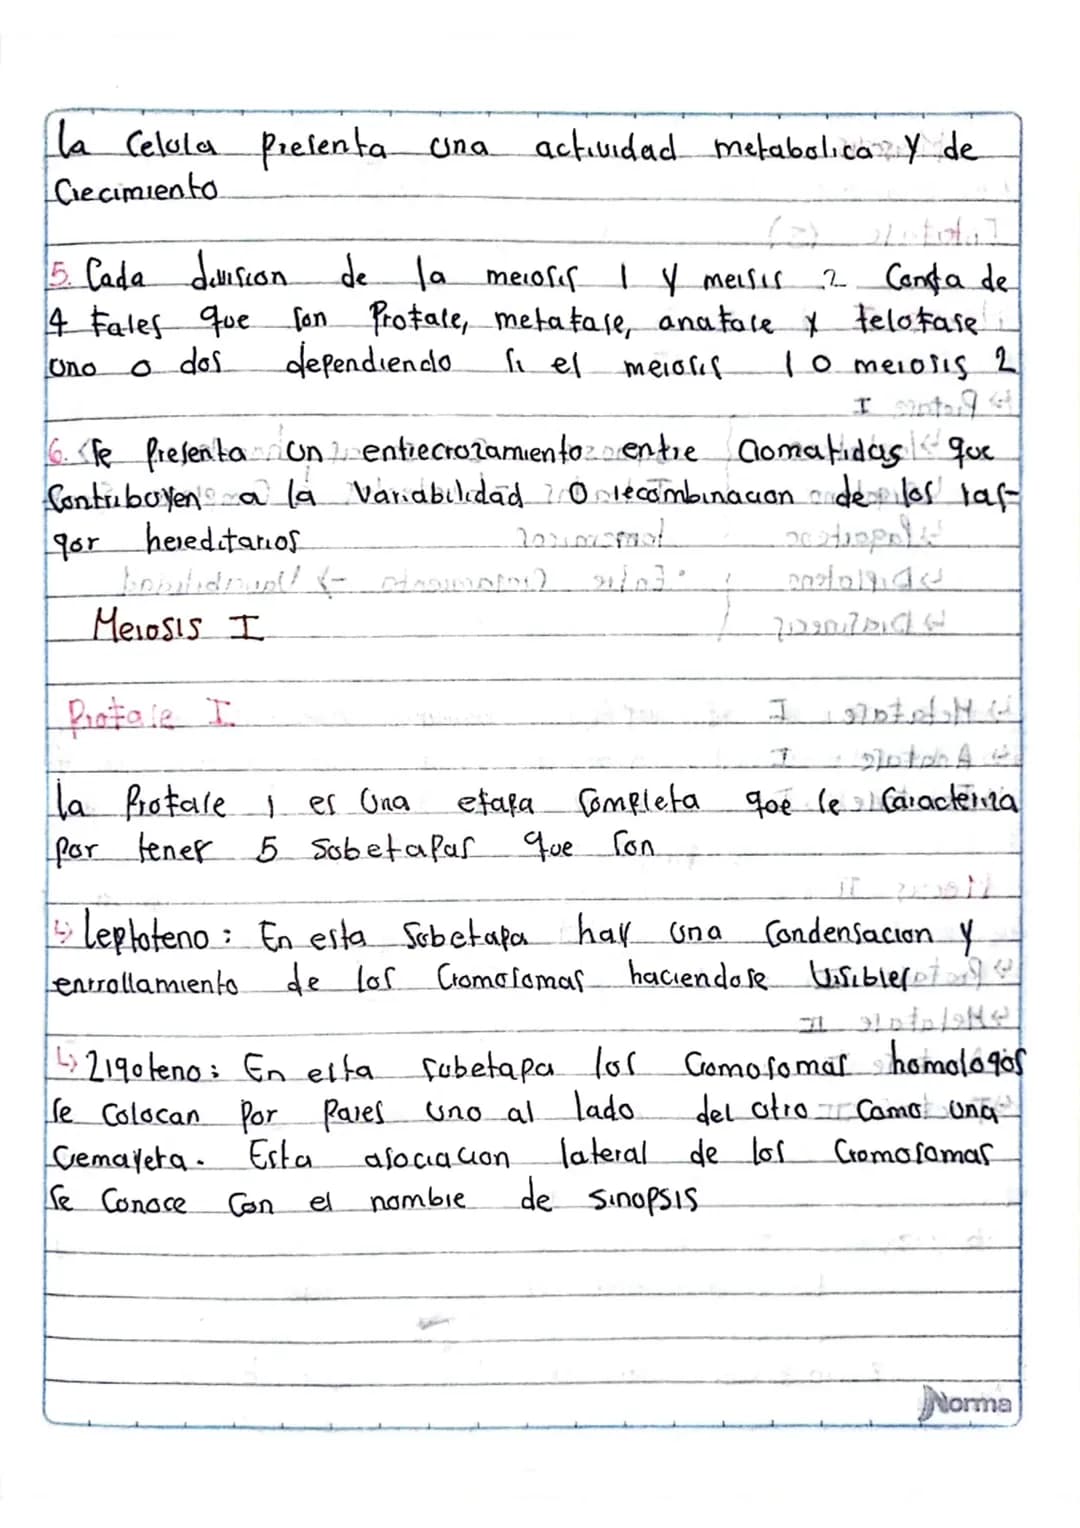 la Celula Presenta una actividad metabolica y de
Crecimiento
5. Cada division de la meiosis 1 y meisis 2 Consta de
4 fases que son Profase, metafase, anafase y telofase
uno o dos dependiendo si el meiosis 1 o meiosis 2
6. Se Presenta un entrecrozamiento entre Cromatidas que
Contribuyen a la Variabilidad O recombinacion de los ras-
gos hereditarios
Meiosis I
Profase I
la Profase 1 es Una etapa Completa que se Caracteriza
por tener 5 Sobetapas que son
↳ Leptoteno: En esta Sobetapa hay una Condensacion y
enrrollamiento de los Cromosomas haciendose Visibles
↳ Zigoteno: En esta subetapa los Cromosomas homologos
se Colocan por Pares uno al lado del otro Como una
Cremayera. Esta asociacion lateral de los Cromosomas
se Conoce Con el nombre de sinopsis
Norma